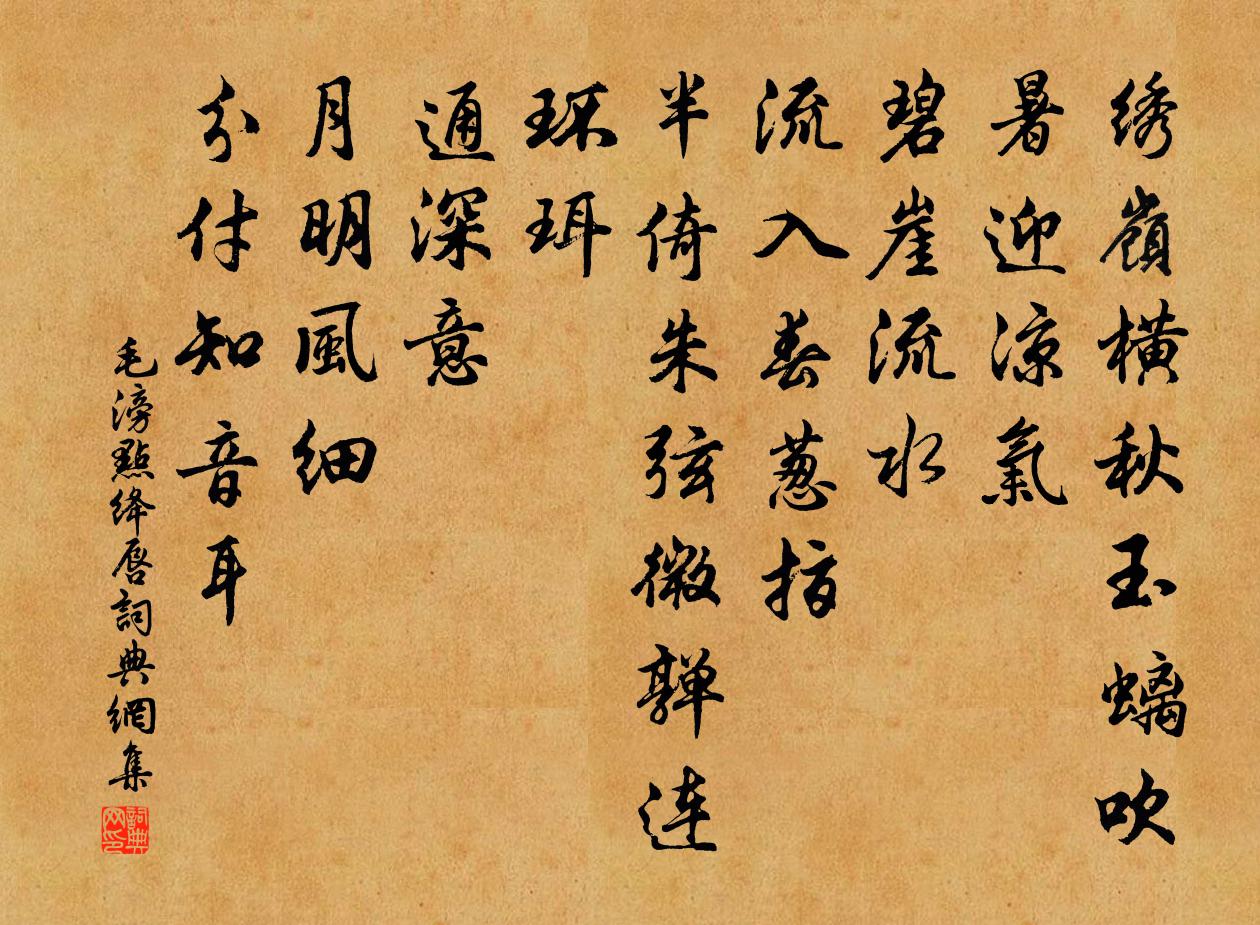 绣嶺横秋玉螭吹
暑迎凉氣
碧崖流水
流入春葱指
半倚朱弦微嚲連
环珥
通深意
月明風细
分付知音耳
毛滂點绛唇詞典網集
詞典网印